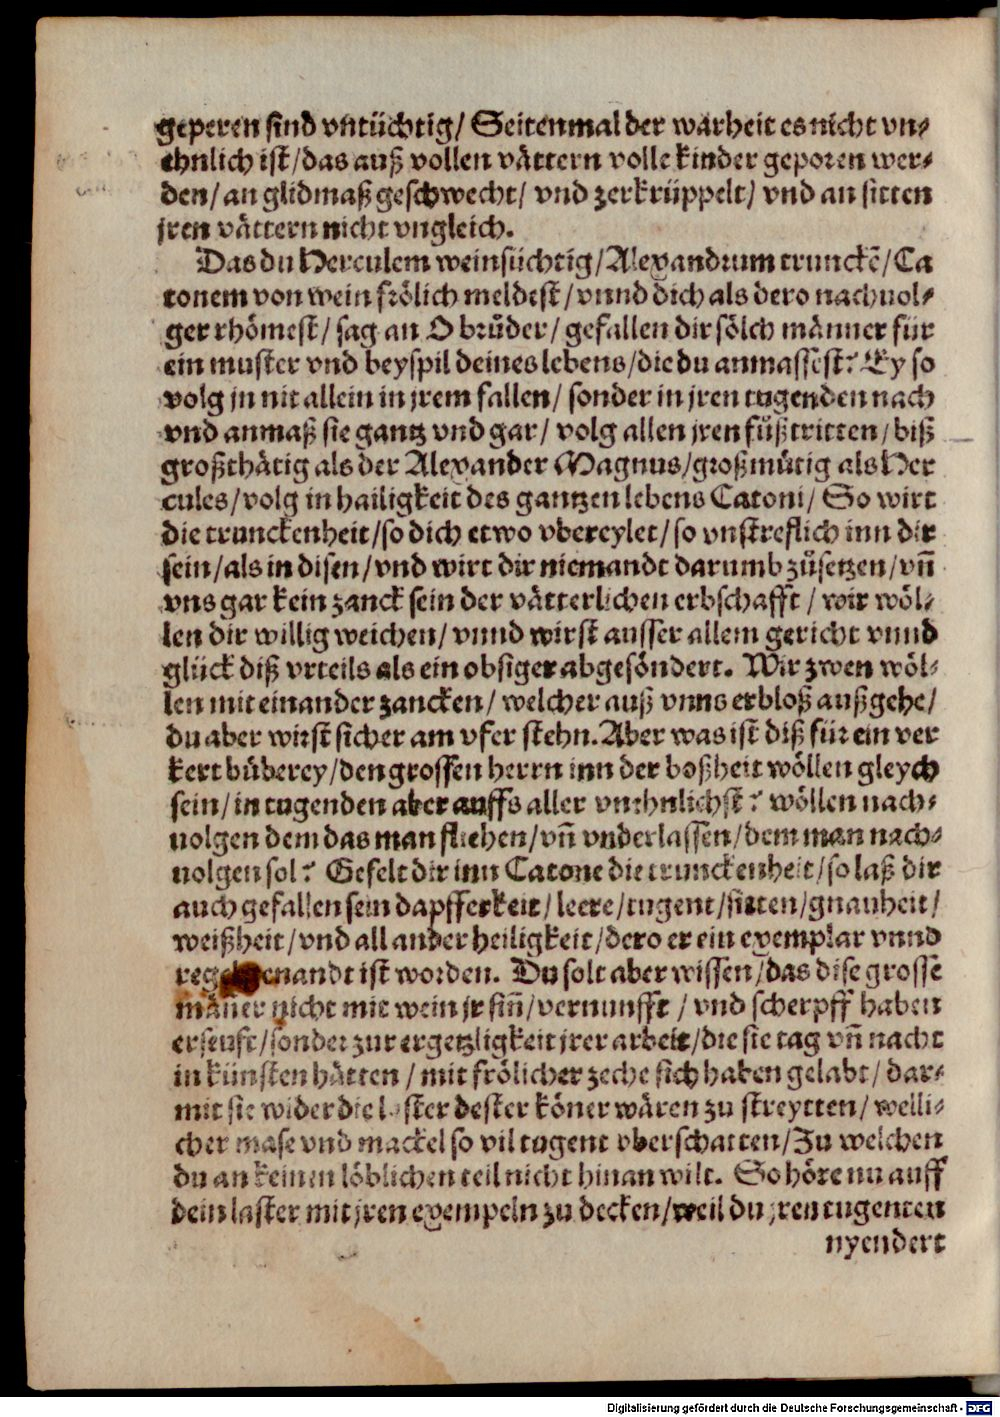 geperen sind vntüchtig/ Seitenmal der warheit es nicht vn-
ehnlich ist/das auß vollen vättern volle kinder geporen wer-
den/ an glidmaß geschwecht/ vnd zerkrüppelt/ vnd an sitten
jren vättern nicht vngleich.
Das du Herculem weinsüchtig/Alexandrum trunckē/Ca
tonem von wein frölich meldest/vnnd dich als dero nachuol-
ger rhömest/ sag an O brůder/ gefallen dir sölch männer für
ein muster vnd beyspil deines lebens/die du anmassest? Ey so
volg jn nit allein in jrem fallen/ sonder in jren tugenden nach
vnd anmaß sie gantz vnd gar/ volg allen jren fůßtritten/ biß
großthätig als der Alexander Magnus/großmütig als Her
cules/volg in hailigkeit des gantzen lebens Catoni/ So wirt
die trunckenheit/so dich etwo vbereylet/so vnstreflich inn dir
sein/als in disen/vnd wirt dir niemandt darumb zůsetzen/vñ
vns gar kein zanck sein der vätterlichen erbschafft/ wir wöl-
len dir willig weichen/ vnnd wirst ausser allem gericht vnnd
glück diß vrteils als ein obsiger abgesöndert. Wir zwen wöl-
len mit einander zancken/ welcher auß vnns erbloß außgehe/
du aber wirst sicher am vfer stehn. Aber was ist diß für ein ver
kert bůberey/den grossen herrn inn der boßheit wöllen gleych
sein/in tugenden aber auffs aller vnehnlichst? wöllen nach-
uolgen dem das man fliehen/vñ vnderlassen/dem man nach-
uolgen sol? Gefelt dir inn Catone die trunckenheit/so laß dir
auch gefallen sein dapfferkeit/leere/tugent/sitten/gnauheit/
weißheit/vnd all ander heiligkeit/dero er ein exemplar vnnd
regel genandt ist worden. Du solt aber wissen/das dise grosse
mäner nicht mit wein jr siñ/vernunfft/ vnd scherpff haben
erseuft/sonder zur ergetzligkeit jrer arbeit/die sie tag vñ nacht
in künsten hätten/ mit frölicher zeche sich haben gelabt/ dar-
mit sie wider die laster dester köner wären zu streytten/ welli-
cher mase vnd mackel so vil tugent vberschatten/Zu welchen
du an keinen löblichen teil nicht hinan wilt. So höre nu auff
dein laster mit jren exempeln zu decken/weil du jren tugenten
nyendert
Digitalisierung gefördert durch die Deutsche Forschungsgemeinschaft - DFG